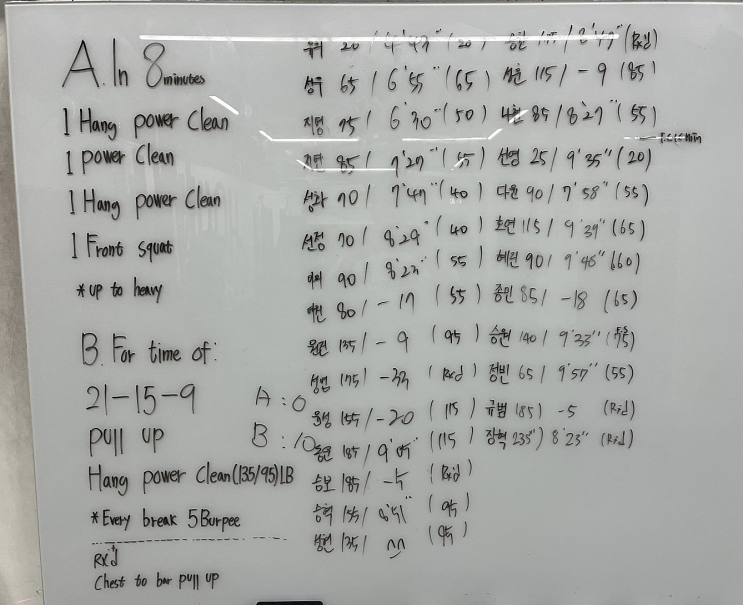 A. In 8 minutes
1 Hang power Clean
1 power Clean
1 Hang power Clean
1 Front squat
* up to heavy
B. For time of:
21-15-9
pull up
Hang power Clean (135/95) LB
* Every break 5 Burpee
Rx'd
Chest to bar pull up
A : 0
B : 10
20 / (20)
성우 65 / 6'55" (65)
지영 75 / 6'30" (50)
85 / 7'27"
성화 70 / 7'47" (40)
선정 70 / 8'29" (40)
90 / 8'23" (55)
80 / -17 (55)
135 / -9 (95)
성범 175 / -33 (Rx'd)
155 / -20 (115)
185 / 9'05" (115)
승보 185 / -5 (Rx'd)
승혁 155 / 8'51" (95)
성현 135 / (95)
승원 (Rx'd)
115 / -9 (85)
나현 85 / 8'27" (55)
선영 25 / 9'35" (20)
다원 90 / 7'58" (55)
호연 115 / 9'39" (65)
혜원 90 / 9'48" (60)
종민 85 / -18 (65)
승원 140 / 9'33" (75)
정빈 65 / 9'57" (55)
규범 185) -5 (Rx'd)
장혁 235) 8'23" (Rx'd)